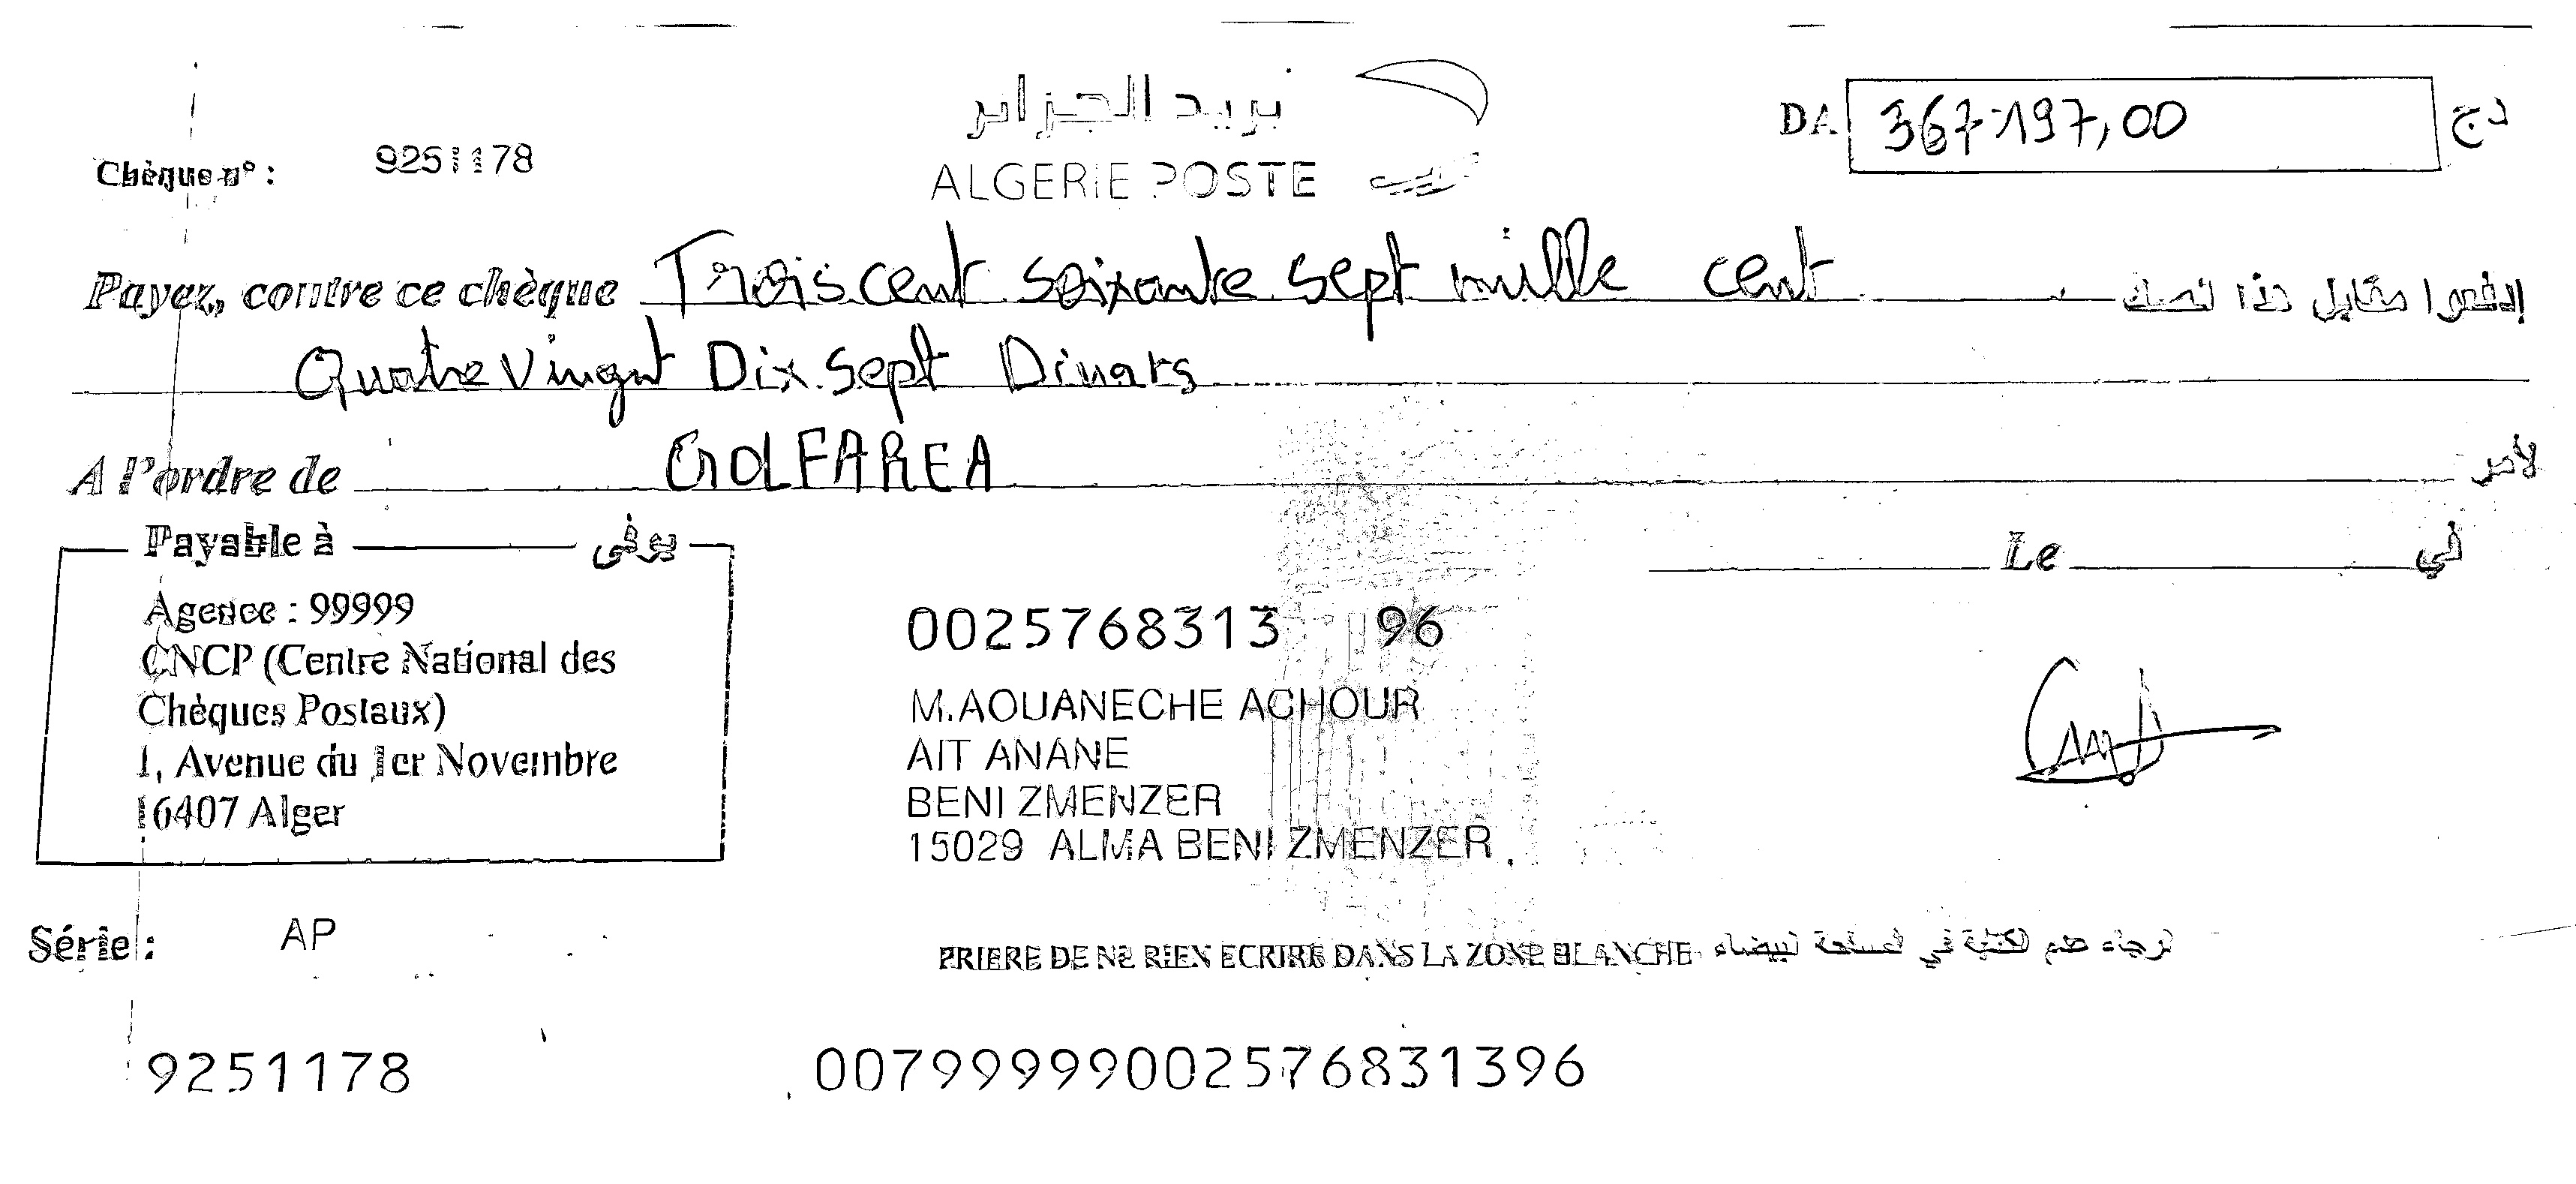 بريد الجزائر
ALGERIE POSTE
DA 367.197,00 دج
Chèque n° : 9251178
Payez, contre ce chèque Trois cent soixante sept mille cent إدفعوا مقابل هذا الصك
Quatre vingt Dix Sept Dinars
A l'ordre de GOLFAREA لأمر
Payable à يوفى
Le في
Agence : 99999
CNCP (Centre National des
Chèques Postaux)
1, Avenue du 1er Novembre
16407 Alger
0025768313 96
M.AOUANECHE ACHOUR
AIT ANANE
BENI ZMENZER
15029 ALMA BENI ZMENZER
Série : AP
PRIERE DE NE RIEN ECRIRE DANS LA ZONE BLANCHE الرجاء عدم الكتابة في المساحة البيضاء
9251178 00799999002576831396